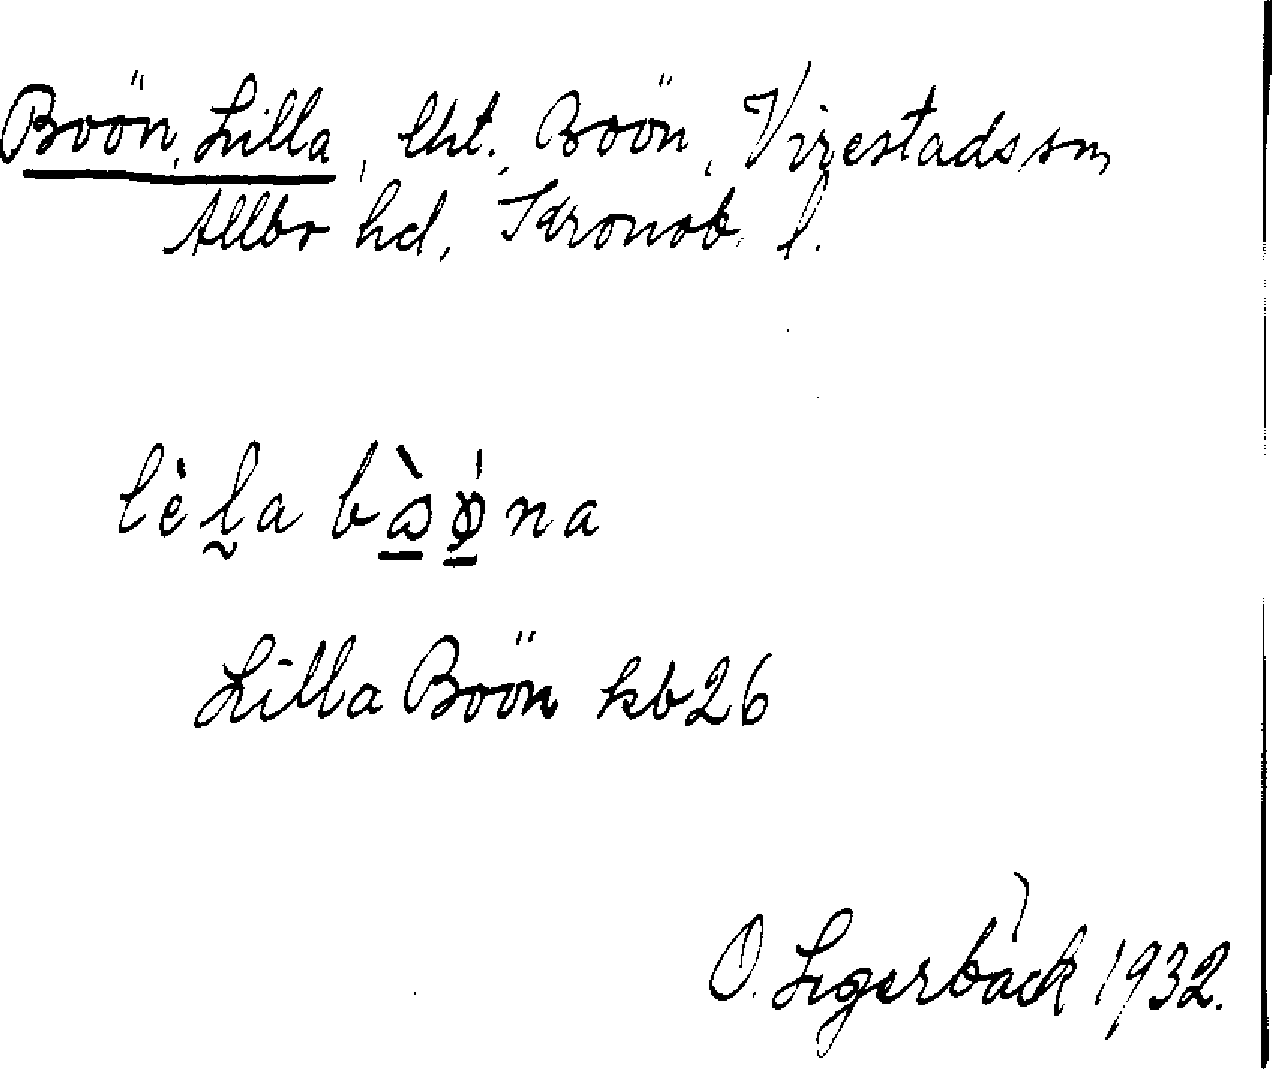 Boön, Lilla, lht. Boön, Virestads sn,
Allbo hd, Kronob. l.
lèl̰a bò̱ǿ̱na
Lilla Boön kb26
O. Legerbäck 1932.